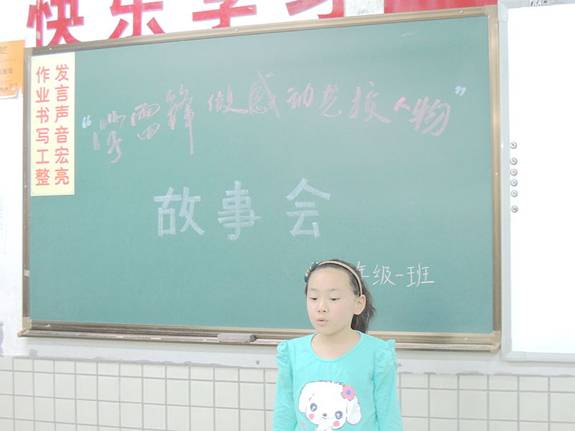 快乐学习
发言声音宏亮
作业书写工整
“学雷锋 做感动校人物”
故事会
年级一班